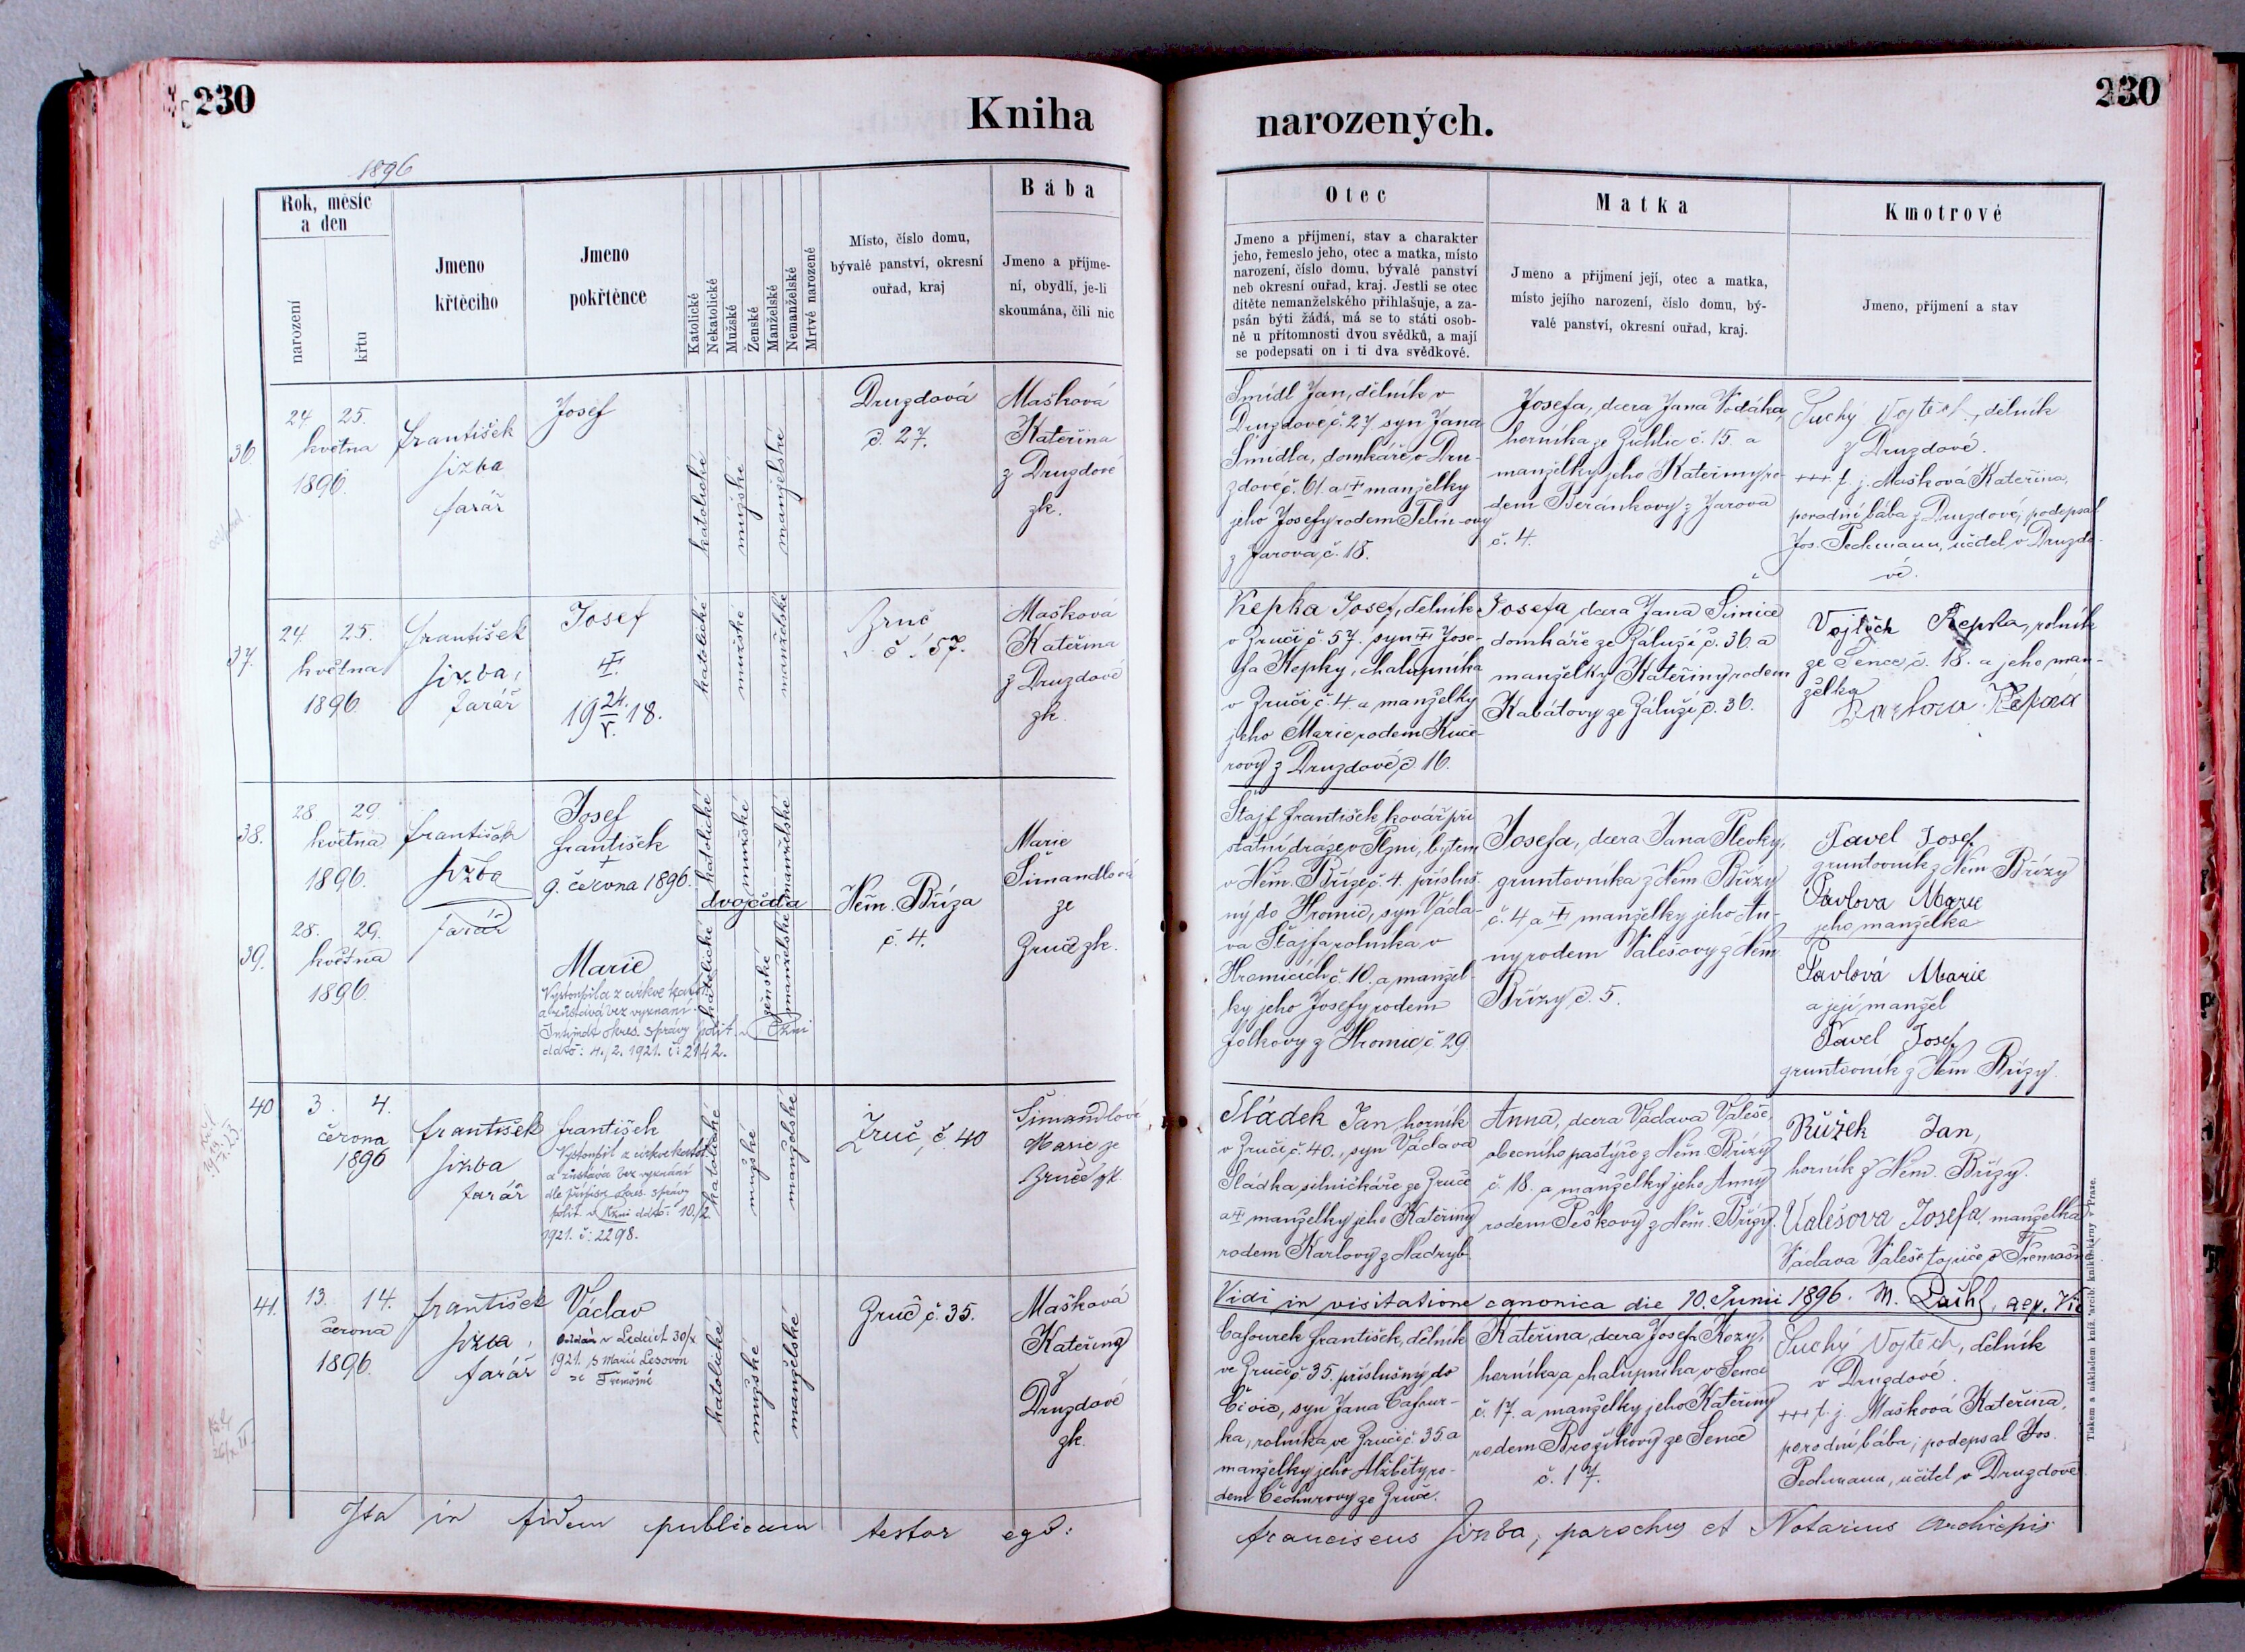 230
Kniha
1896
Rok, měsíc
a den
narození
křtu
Jmeno
křtěcího
Jmeno
pokřtěnce
Katolické
Nekatolické
Mužské
Ženské
Manželské
Nemanželské
Mrtvě narozené
Místo, číslo domu,
bývalé panství, okresní
ouřad, kraj
Bába
Jmeno a příjme-
ní, obydlí, je-li
skoumána, čili nic
36
24. 25.
května
1896.
František
Jizba
farář
Josef
katolické
mužské
manželské
Druzdová
č. 27.
Mašková
Kateřina
z Druzdové
zk.
37.
24. 25.
května
1896
František
Jizba,
farář
Josef
19 24./V. 18.
katolické
mužské
manželské
Zruč
č. 57.
Mašková
Kateřina
z Druzdové
zk.
38.
28. 29.
května
1896.
František
Jizba
farář
Josef
František
+
9. června 1896.
katolické
mužské
manželské
dvojčata
Něm. Bříza
č. 4.
Marie
Šimandlová
ze
Zruč zk.
39.
28. 29.
května
1896.
Marie
Vystoupila z církve katol.
a zůstává bez vyznání
okres. správy polit. v Plzni
ddto: 4./2. 1921. č: 2142.
katolické
ženské
manželské
40
3. 4.
června
1896
František
Jizba
farář
František
Vystoupil z církve katol.
a zůstává bez vyznání
dle přípisu okres. správy
polit. v Plzni ddto: 10./2
1921. č: 2298.
katolické
mužské
manželské
Zruč, č. 40
Šimandlová
Marie ze
Zruče zk.
41.
13. 14.
června
1896.
František
Jizba,
farář
Václav
Oddán v Ledcích 30/x
1921. s Marií Lesovou
ze Třemošné
katolické
mužské
manželské
Zruč č. 35.
Mašková
Kateřina
z
Druzdové
zk.
Ita in fidem publicam testor ego:
230
narozených.
Otec
Jmeno a příjmení, stav a charakter
jeho, řemeslo jeho, otec a matka, místo
narození, číslo domu, bývalé panství
neb okresní ouřad, kraj. Jestli se otec
dítěte nemanželského přihlašuje, a za-
psán býti žádá, má se to státi osob-
ně u přítomnosti dvou svědků, a mají
se podepsati on i ti dva svědkové.
Matka
Jmeno a příjmení její, otec a matka,
místo jejího narození, číslo domu, bý-
valé panství, okresní ouřad, kraj.
Kmotrové
Jmeno, příjmení a stav
Šmídl Jan, dělník v
Druzdové č. 27 syn Jana
Šmídla, domkáře v Dru-
zdové č. 61. a manželky
jeho Josefy rodem
z Jarova, č. 18.
Josefa, dcera Jana Vodáka,
horníka ze Žichlic č. 15. a
manželky jeho Kateřiny ro-
dem Beránkovy z Jarova
č. 4.
Suchý Vojtěch, dělník
z Druzdové.
+++ t. j. Mašková Kateřina,
porodní bába z Druzdové, podepsal
Jos. Pechmann, učitel v Druzdo-
vé.
Kepka Josef, dělník
v Zruči č. 57. syn Jose-
fa Kepky, chalupníka
v Zruči č. 4 a manželky
jeho Marie rodem Kuče-
rovy z Druzdové, č. 16.
Josefa dcera Jana Šimice
domkáře ze Záluží č. 36. a
manželky Kateřiny rodem
Kabátovy ze Záluží, č. 36.
Vojtěch Kepka, rolník
ze Sence, č. 18. a jeho man-
želka
Štajf František kovář při
státní dráze v Plzni, bytem
v Něm. Bříze č. 4. přísluš-
ný do Hromic, syn Václa-
va Štajfa rolníka v
Hromicích č. 10. a manžel-
ky jeho Josefy rodem
Folkovy z Hromic č. 29
Josefa, dcera Jana Plevky,
gruntovníka z Něm. Břízy
č. 4 a manželky jeho An-
ny rodem Valešovy z Něm.
Břízy č. 5.
Pavel Josef
gruntovník z Něm. Břízy
Pavlova Marie
jeho manželka
Pavlová Marie
a její manžel
Pavel Josef
gruntovník z Něm. Břízy.
Sládek Jan horník
v Zruči č. 40., syn Václava
Sládka silničkáře ze Zruče
a manželky jeho Kateřiny
rodem Karlovy z Nadryb
Anna, dcera Václava Valeše
obecního pastýře z Něm. Břízy
č. 18. a manželky jeho Anny
rodem Peškovy z Něm. Břízy.
Růžek Jan,
horník z Něm. Břízy.
Valešova Josefa, manželka
Václava Valeše topiče v Třemošn
Vidi in visitatione canonica die 10. Junii 1896. M.
Cafourek František, dělník
ve Zruči č. 35. příslušný do
syn Jana Cafour-
ka, rolníka ve Zruči č. 35 a
manželky jeho Alžběty ro-
dem Čechurovy ze Zruče.
Kateřina, dcera Josefa Kozy,
horníka a chalupníka v Senci
č. 17. a manželky jeho Kateřiny
rodem Brožíkovy ze Sence
č. 17.
Suchý Vojtěch, dělník
v Druzdové.
+++ t. j. Mašková Kateřina,
porodní bába; podepsal Jos.
Pechmann, učitel v Druzdové
Franciscus Jizba, parochus et Notarius Archiepis
Tiskem a nákladem kníž. arcib. knihtiskárny v Praze.